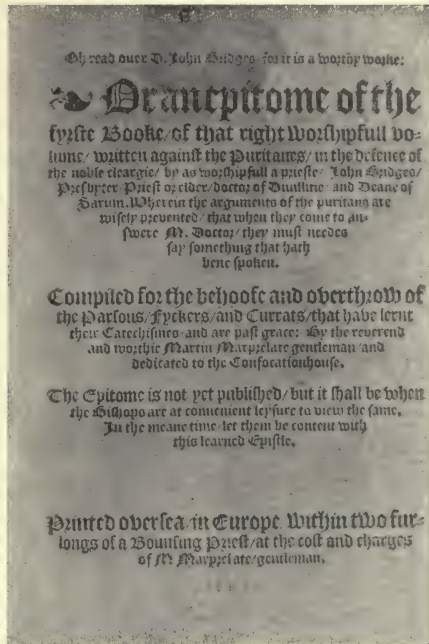 Oh read over D. John Bridges / for it is a worthy worke:
Or an epitome of the
fyrste Booke / of that right worshipfull vo-
lume / written against the Puritanes / in the defence of
the noble cleargie / by as worshipfull a prieste / John Bridges /
Presbyter / Priest or elder / doctor of Diuillitie / and Deane of
Sarum. Wherein the arguments of the puritans are
wisely prevented / that when they come to an-
swere M. Doctor / they must needes
say something that hath
bene spoken.
Compiled for the behoofe and overthrow of
the Parsons / Fyckers / and Currats / that have lernt
their Catechismes / and are past grace: By the reverend
and worthie Martin Marprelate gentleman / and
dedicated to the Confocationhouse.
The Epitome is not yet published / but it shall be when
the Bishops are at convenient leysure to view the same.
In the meane time / let them be content with
this learned Epistle.
Printed oversea / in Europe / within two fur-
longs of a Bounsing Priest / at the cost and charges
of M. Marprelate / gentleman.